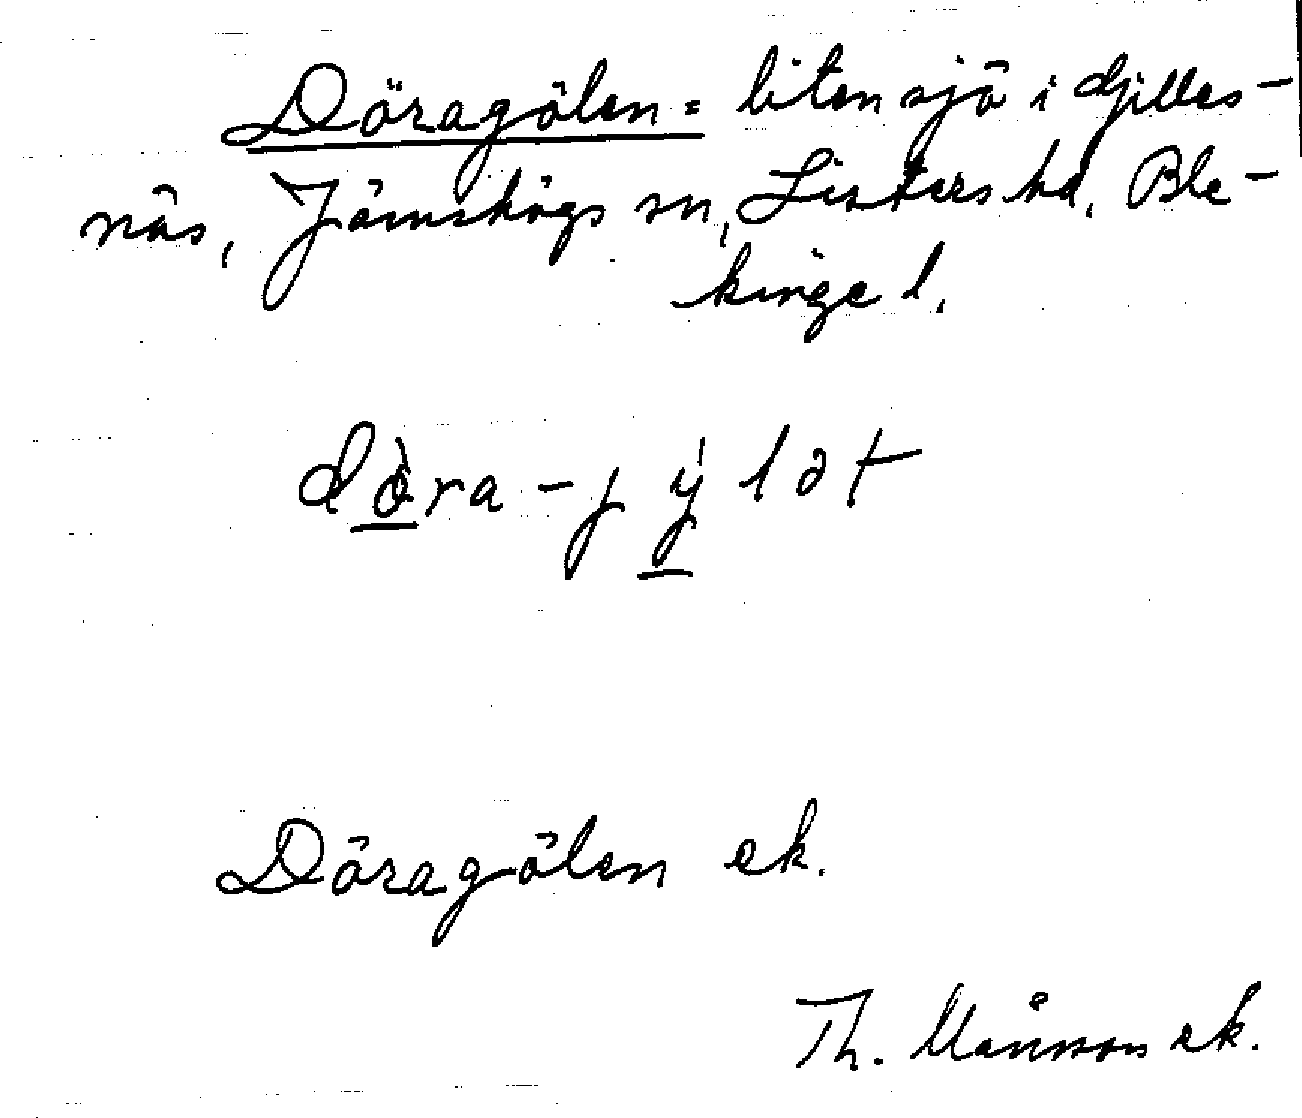 Döragölen = liten sjö i Djilles-
näs, Jämshögs sn, Listers hd, Ble-
kinge l.
dòra-jýlət
Döragölen ek.
Th. Månsson ek.